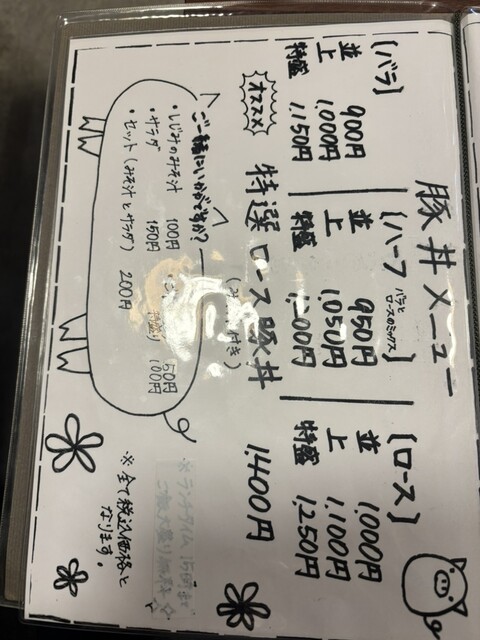 豚丼メニュー
〔バラ〕
並 900円
上 1,000円
特盛 1,150円
〔ハーフ〕
バラとロースのミックス
並 950円
上 1,050円
特盛 1,200円
〔ロース〕
並 1,000円
上 1,100円
特盛 1,250円
オススメ
特選ロース豚丼 1,400円
付き)
ご一緒にいかがですか?
・しじみのみそ汁 100円
・サラダ 150円
・セット(みそ汁とサラダ) 200円
50円
100円
※ランチタイム15時まで
ご飯大盛り無料
※全て税込価格と
なります。